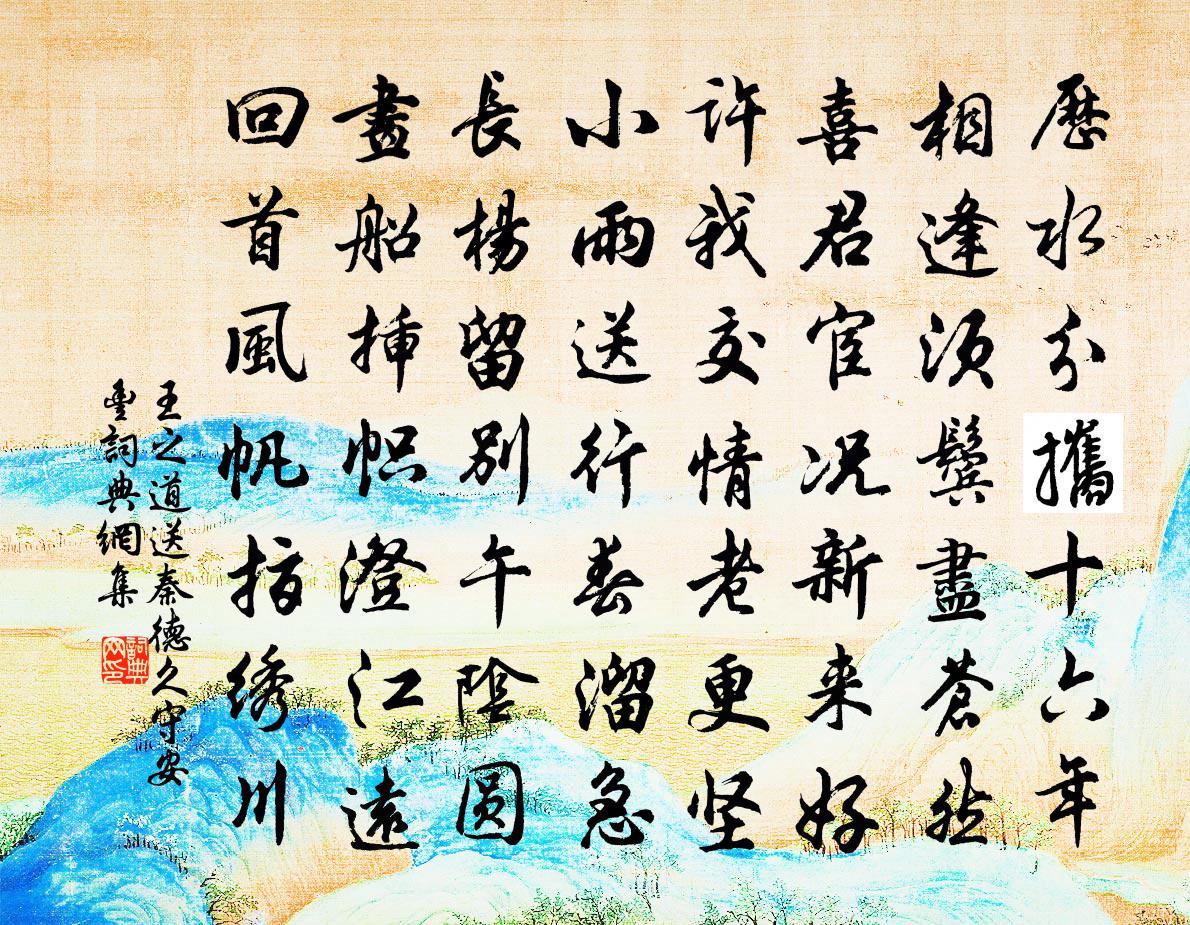 歷水分攜十六年
相逢須鬢盡蒼然
喜君宦况新来好
许我交情老更坚
小雨送行春溜急
長楊留别午陰圓
畫船插幟澄江遠
回首風帆指绣川
王之道送秦德久守安
豐詞典網集